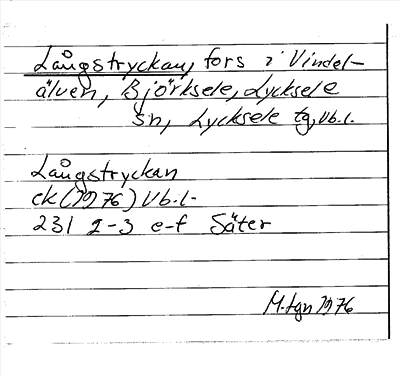 Långstryckan, fors i Vindel-
älven, Björksele, Lycksele
sn, Lycksele tg, Vb.l.
Långstryckan
ek (1976) Vb.l.
231 2-3 e-f Säter
M. tgn 1976